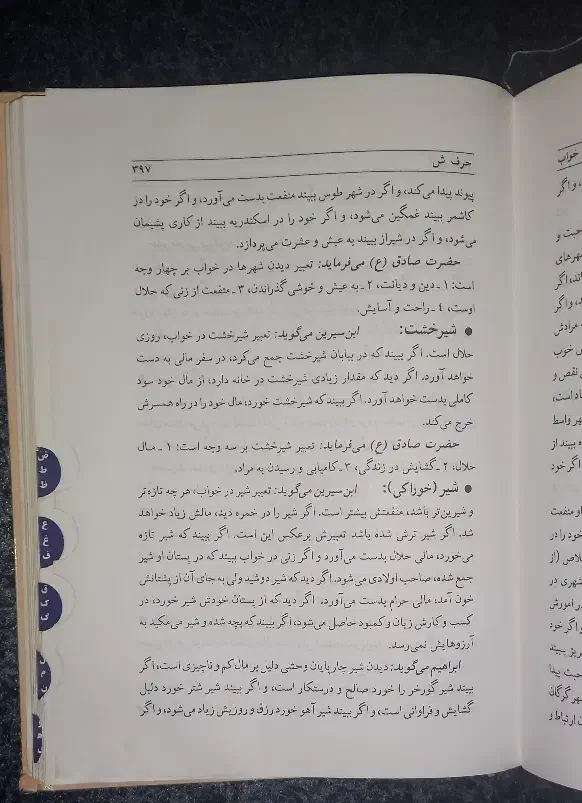 حرف ش
۳۹۷
پیوند پیدا می‌کند، و اگر در شهر طوس بیند منفعت بدست می‌آورد، و اگر خود را در
کاشمر بیند غمگین می‌شود، و اگر خود را در اسکندریه بیند از کاری پشیمان
می‌شود، و اگر در شیراز بیند به عیش و عشرت می‌پردازد.
حضرت صادق (ع) می‌فرماید: تعبیر دیدن شهرها در خواب بر چهار وجه
است: ۱ـ دین و دیانت، ۲ـ به عیش و خوشی گذراندن، ۳ـ منفعت از زنی که حلال
اوست، ٤ـ راحت و آسایش.
● شیرخشت: ابن‌سیرین می‌گوید: تعبیر شیرخشت در خواب، روزی
حلال است. اگر ببیند که در بیابان شیرخشت جمع می‌کرد، در سفر مالی به دست
خواهد آورد. اگر دید که مقدار زیادی شیرخشت در خانه دارد، از مال خود سود
کاملی بدست خواهد آورد. اگر بیند که شیرخشت خورد، مال خود را در راه همسرش
خرج می‌کند.
حضرت صادق (ع) می‌فرماید: تعبیر شیرخشت بر سه وجه است: ۱ـ مال
حلال، ۲ـ گشایش در زندگی، ۳ـ کامیابی و رسیدن به مراد.
● شیر (خوراکی): ابن‌سیرین می‌گوید: تعبیر شیر در خواب، هر چه تازه‌تر
و شیرین‌تر باشد، منفعتش بیشتر است. اگر شیر را در خمره دید، مالش زیاد خواهد
شد. اگر شیر ترش شده باشد تعبیرش برعکس این است. اگر ببیند که شیر تازه
می‌خورد، مالی حلال بدست می‌آورد و اگر زنی در خواب بیند که در پستان او شیر
جمع شده، صاحب اولادی می‌شود. اگر دید که شیر دوشید ولی به جای آن از پستانش
خون آمد، مالی حرام بدست می‌آورد. اگر دید که از پستان خودش شیر خورد، در
کسب و کارش زیان و کمبود حاصل می‌شود، اگر بیند که بچه شده و شیر می‌مکید به
آرزوهایش نمی‌رسد.
ابراهیم می‌گوید: دیدن شیر چارپایان وحشی دلیل بر مال کم و ناچیزی است، اگر
بیند شیر گورخر را خورد صالح و درستکار است، و اگر بیند شیر شتر خورد دلیل
گشایش و فراوانی است، و اگر بیند شیر آهو خورد رزق و روزیش زیاد می‌شود، و اگر
ض
ط
ظ
ع
غ
ف
ق
ک
گ
خواب
، و اگر
حبت و
شهرهای
اند، اگر
د، و اگر
مرادش
خوب
نقص و
اد است،
هر واسط
ه بیند از
اگر خود
او منفعت
خود را در
لاص (از
شهری در
ر امورش
و اگر خود
ریز بیند
حبت پیدا
شهر گرگان
ن ارتباط و